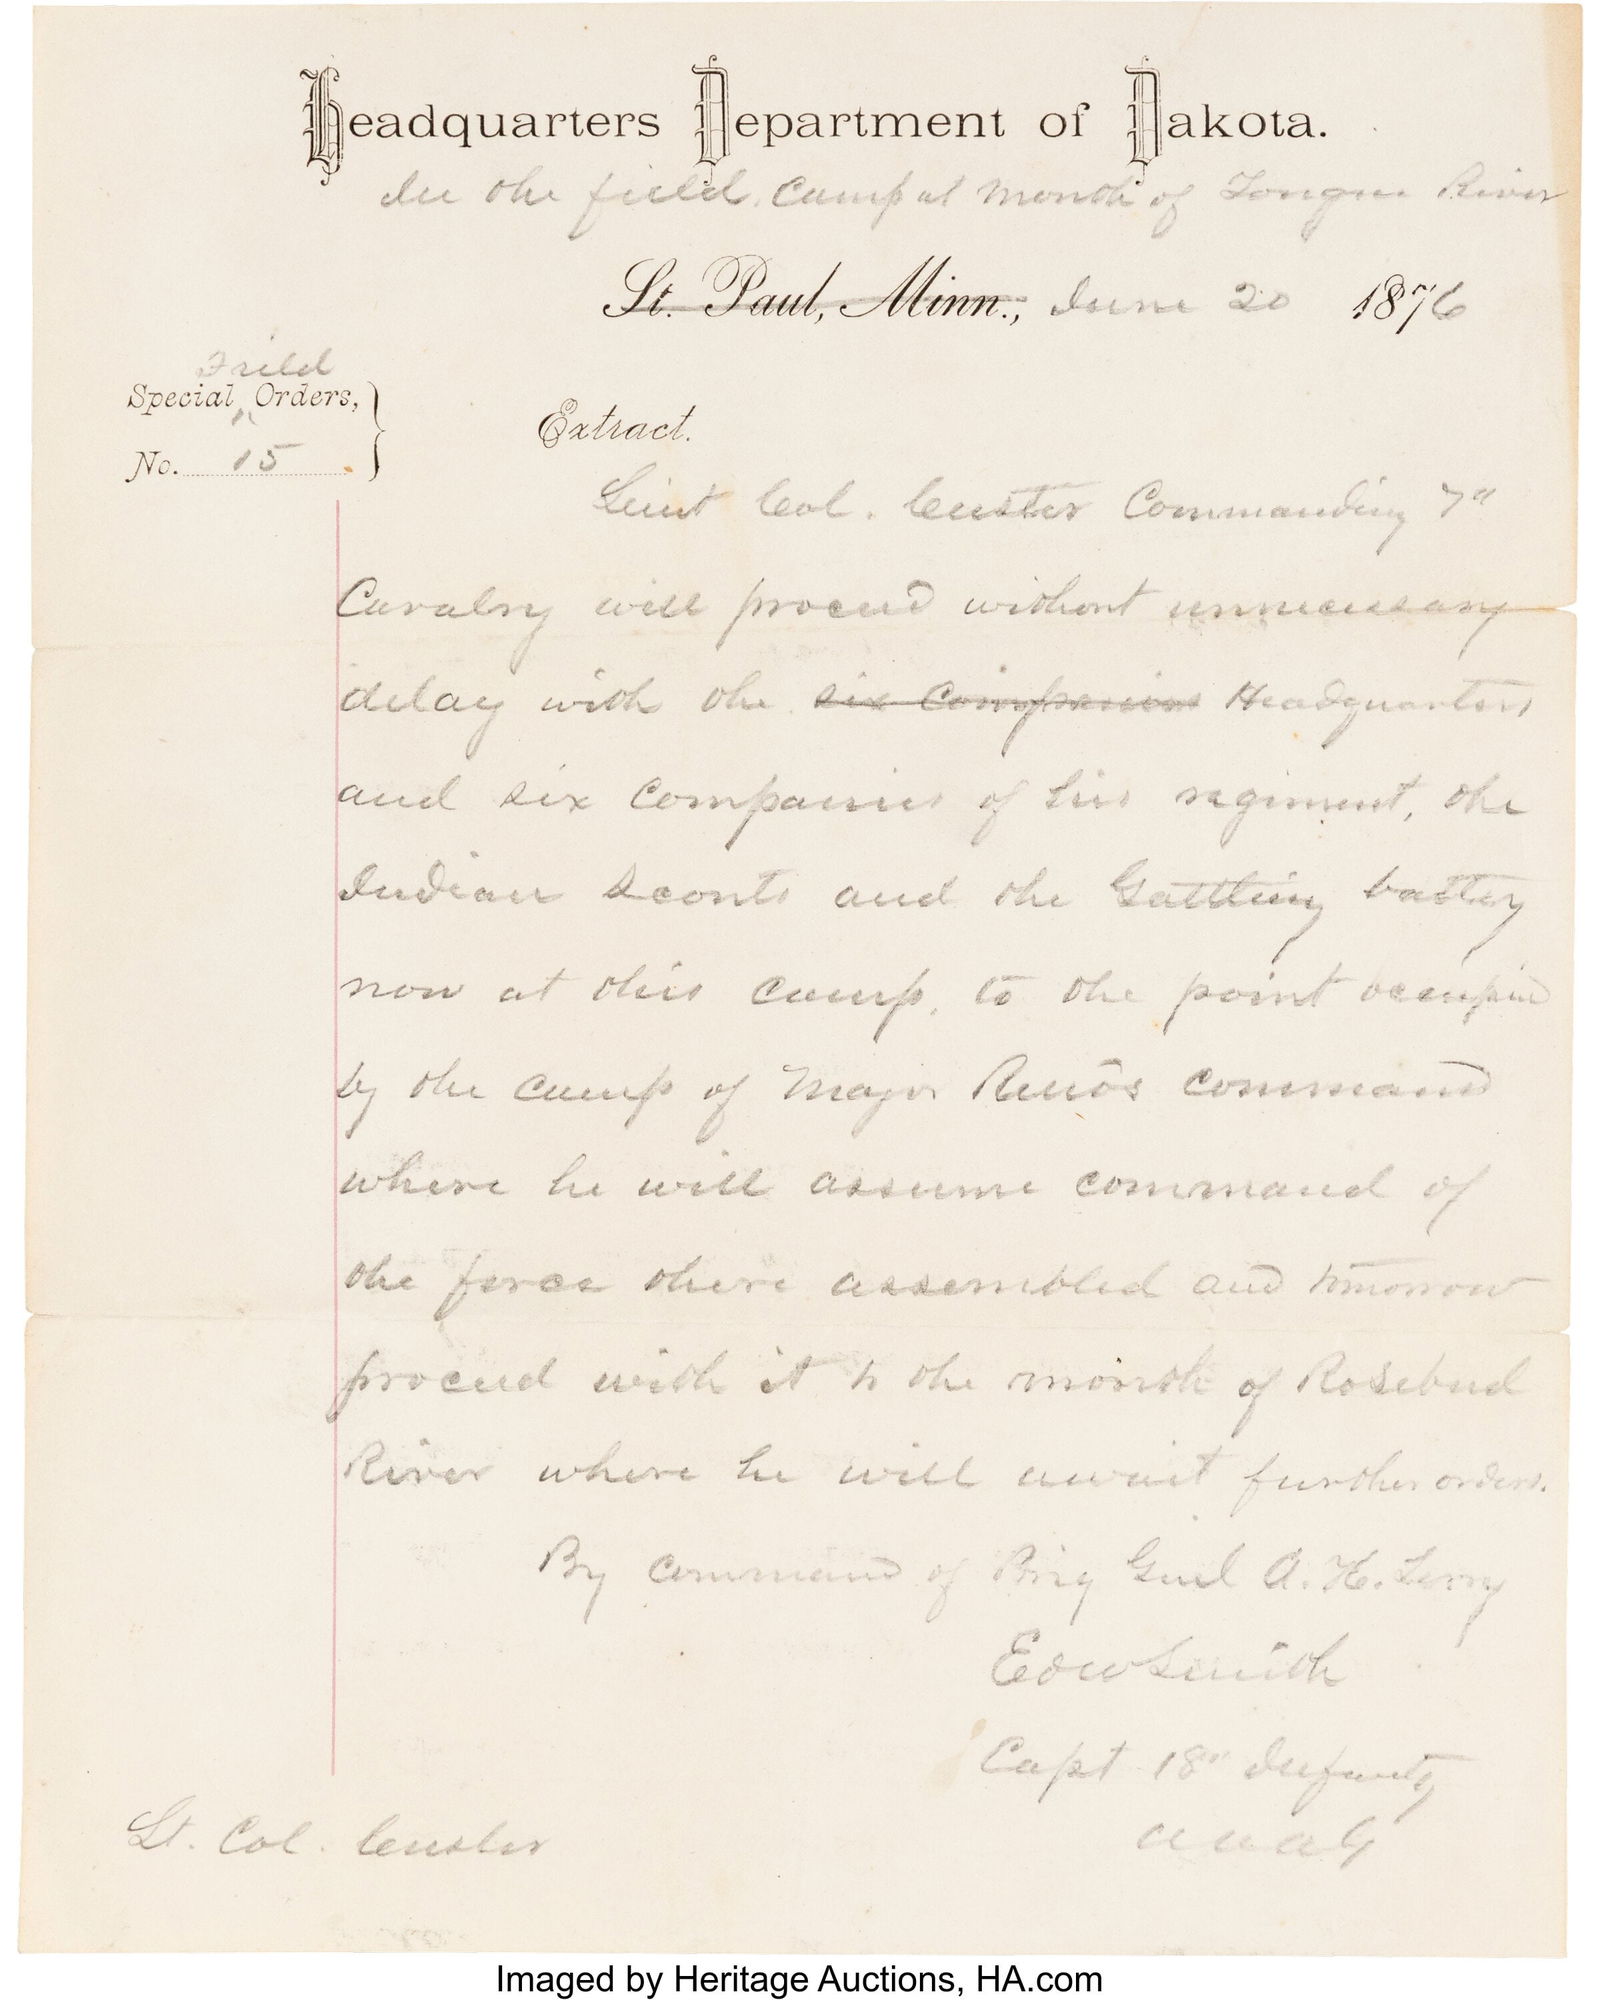 Headquarters Department of Dakota.
In the field, Camp at Mouth of Tongue River
St. Paul, Minn., June 20 1876
Field
Special Orders,
No. 15
Extract.
Lieut Col. Custer Commanding 7"
Cavalry will proceed without unnecessary
delay with the six Companies Headquarters
and six Companies of his regiment, the
Indian Scouts and the Gattling battery
now at this camp, to the point occupied
by the camp of Major Reno's command
where he will assume command of
the force there assembled and tomorrow
proceed with it to the mouth of Rosebud
River where he will await further orders.
By command of Brig Genl A. H. Terry
Edw Smith
Capt 18" Infantry
AAAG
Lt. Col. Custer
Imaged by Heritage Auctions, HA.com